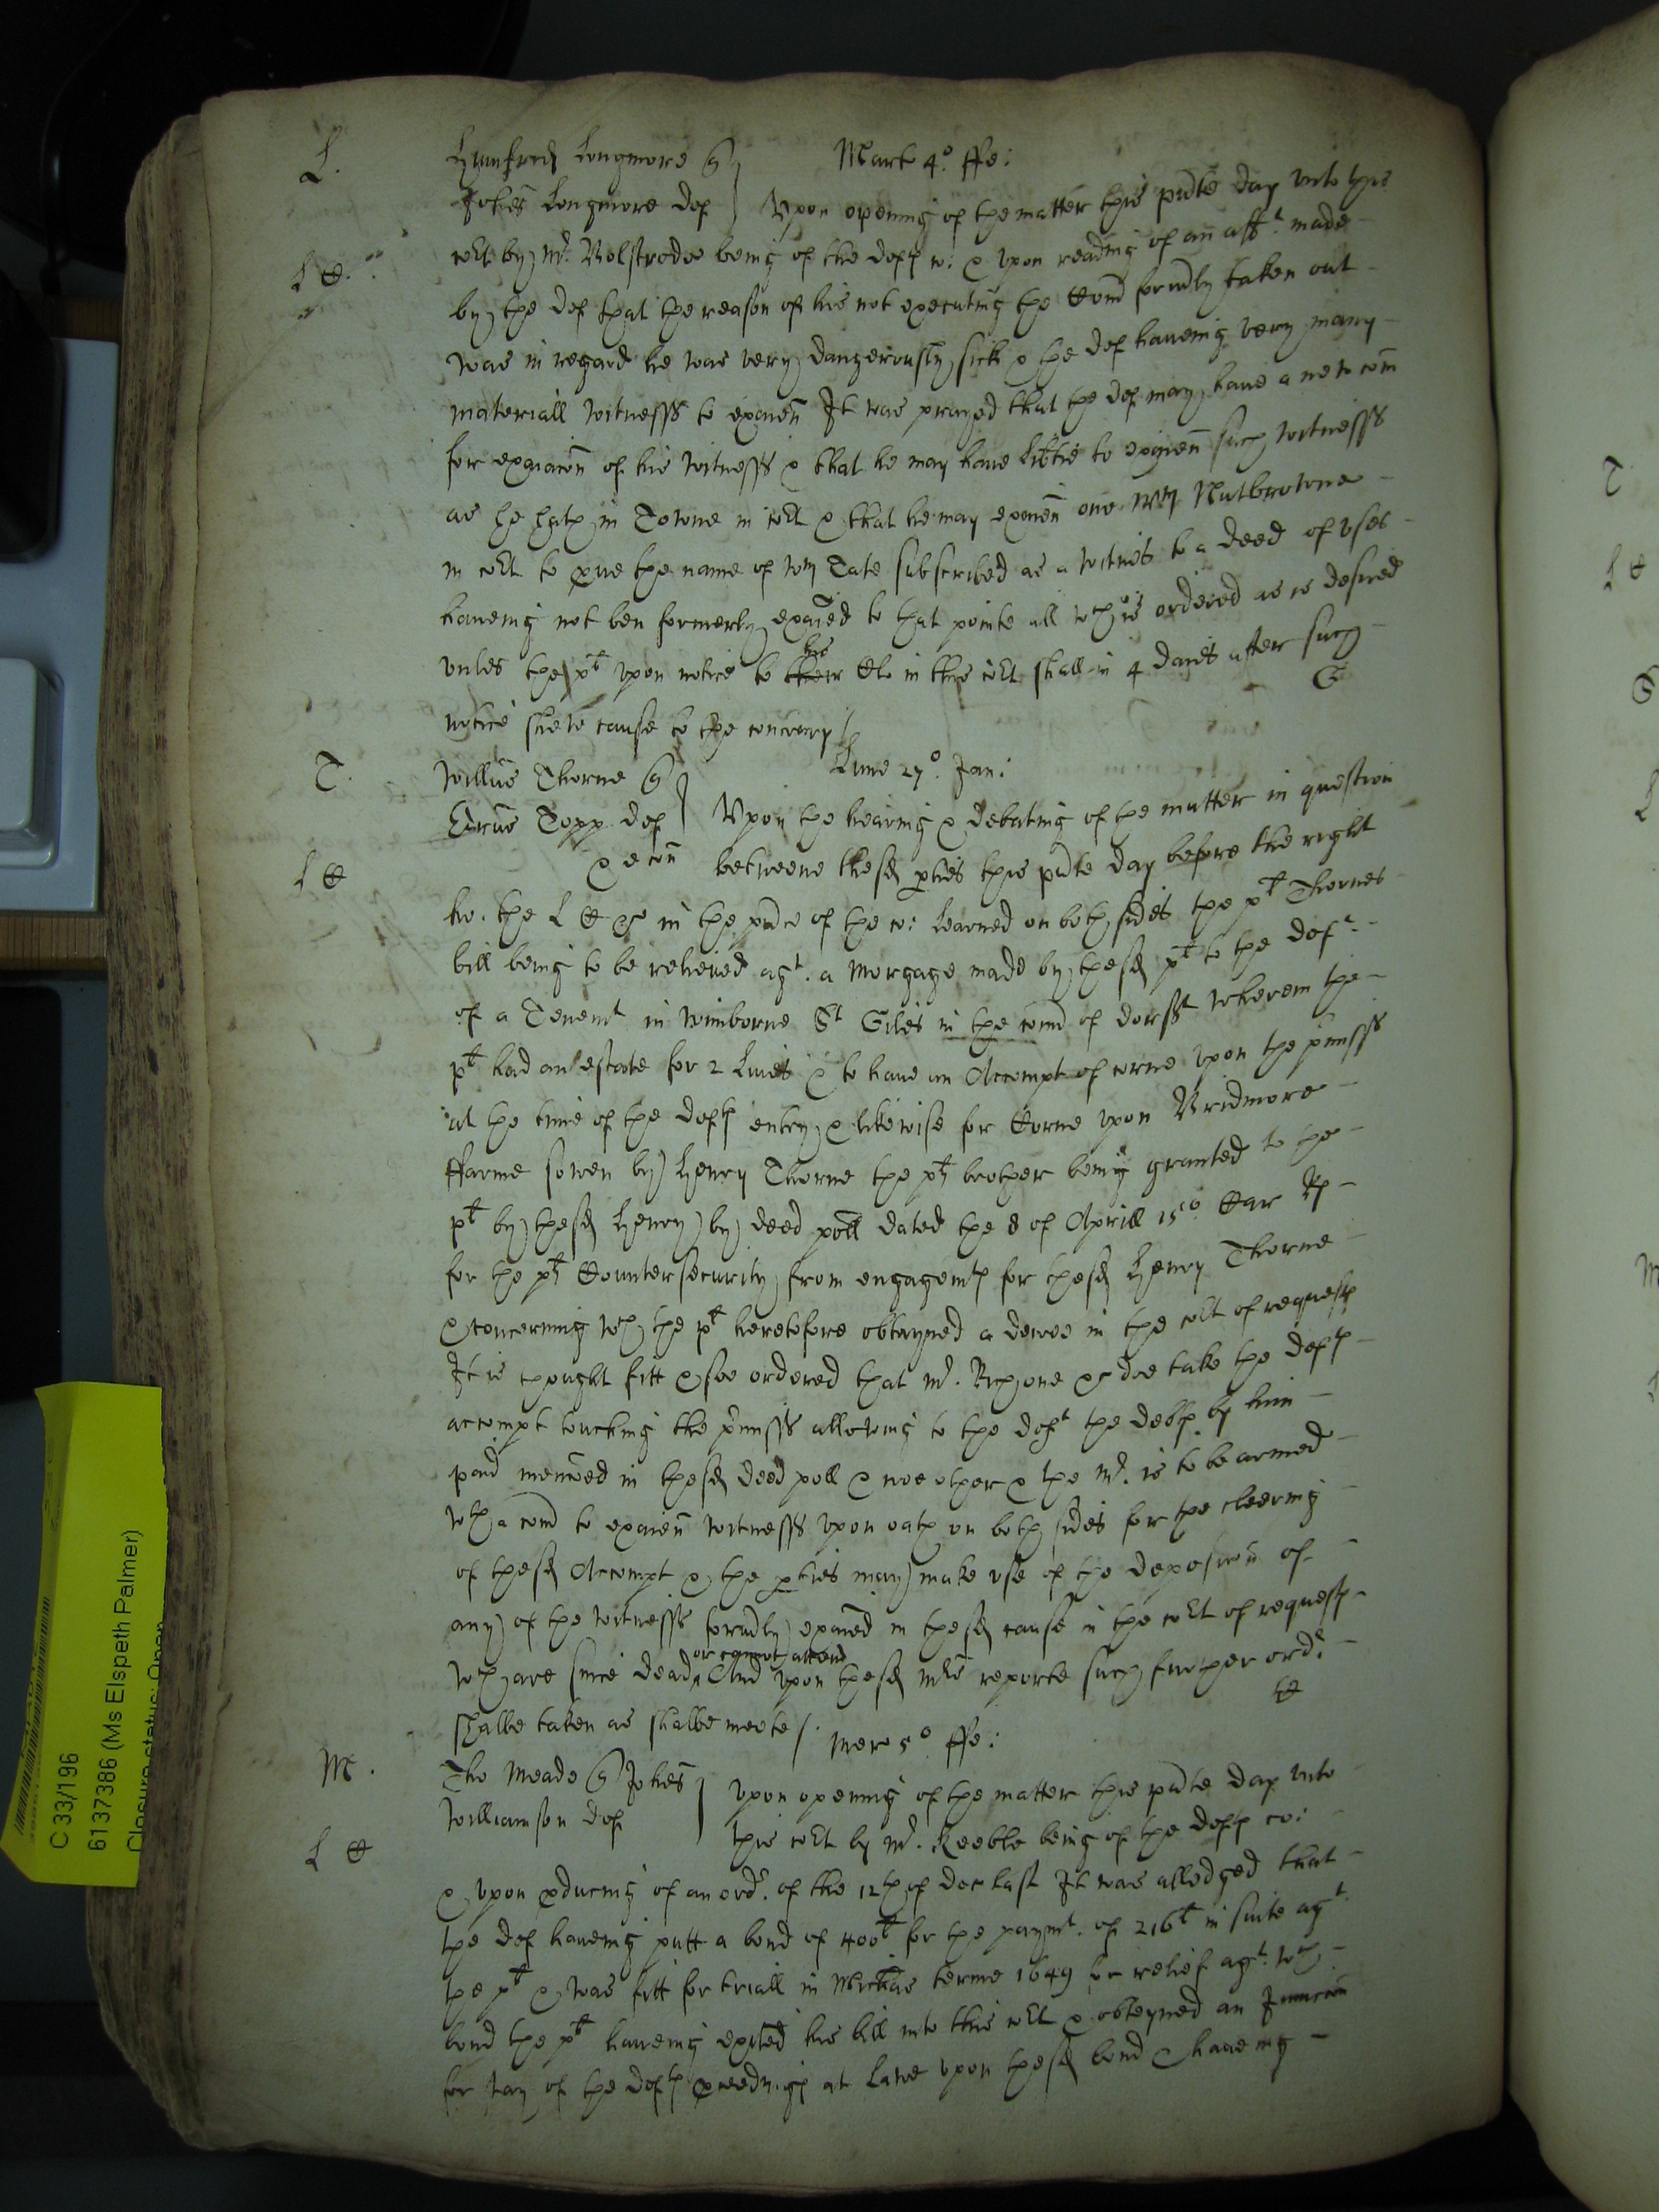 L. Humfrey Longmore q Mart 4º. ffe:
Johes Longmore def Upon opening of the matter this pnte day unto this
L C. Cort by Mr. Bolstrode being of the defts co: & upon reading of an afft. made
by the def that the reason of his not executing the Comn formly taken out
was in regard he was very dangerously sick & the def haveing very many
materiall witnesss to examen It was prayed that the def may have a new com
for exaiacon of his witnesss & that he may have libtie to examen such witnesss
as he hath in Towne in cort & that he may examen one Wm Nutbrowne
in cort to prve the name of Wm Tate subscribed as a witnes to a deed of uses
haveing not ben formerly exaied to that pointe all wch is ordered as is desired
unles the plt upon notice to their his Cl in this cort shall in 4 daies after such
notice shew cause to the contrary G
T. Willus Thorne q Lune 27º. Jan:
Topp def Upon the hearing & debating of the matter in question
& e con betweene these pties this pnte day before the right
L C ho. the L C &c in the pnce of the co: learned on both sides the plt Thornes
bill being to be relieved agt. a Morgage made by the sd plt to the deft.
of a Tenemt in Wimborne St Giles in the com of dorsst wherein the
plt had an estate for 2 lives & to have an Accompt of corne upon the pmisss
at the time of the defts entry & likewise for Corne upon Bridmore
ffarme sowen by Henry Thorne the plts brother being granted to the
plt by the sd Henry by deed poll dated the 8 of Aprill 15º Car R
for the plts Countersecurity from engagemts for the sd Henry Thorne
& concerning wch the plt heretofore obtayned a decree in the cort of requests
It is thought fitt & soe ordered that Mr. &c doe take the defts
accompt touching the pmisss allowing to the deft the debts by him
paid menconed in the sd deed poll & noe other & the Mr. is to be armed
wth a com to examen witnesss upon oath on both sides for the cleering
of the sd Accompt & the pties may make use of the deposicons of
any of the witnesss formly exaied in the sd cause in the cort of requests
wch are since dead or cannot attend And upon the sd Mrs reporte such further ordr.
shalbe taken as shalbe meete C
M. Tho Meade q Johes Mer 5º. ffe:
Williamson def Upon opening of the matter this pnte day unto
L C this cort by Mr. Keeble being of the defts co:
& upon pducing of an ordr. of the 12th of Dec last It was alledged that
the def haveing putt a bond of 400l for the paymt. of 216l in suite agt.
the plt & was fitt for triall in Michas terme 1649 for relief agt. wch
bond the plt haveing exited his bill into this cort & obteyned an Juncon
for stay of the defts pceedings at Lawe upon the sd bond & haveing
C 33/196
6137386 (Ms Elspeth Palmer)
Closure status: Open